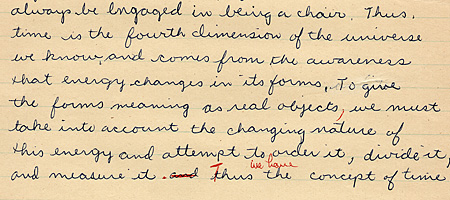 always be engaged in being a chair. Thus,
time is the fourth dimension of the universe
we know, and comes from the awareness
that energy changes in its forms. To give
the forms meaning as real objects, we must
take into account the changing nature of
this energy and attempt to order it, divide it,
and measure it. and Thus we have the concept of time